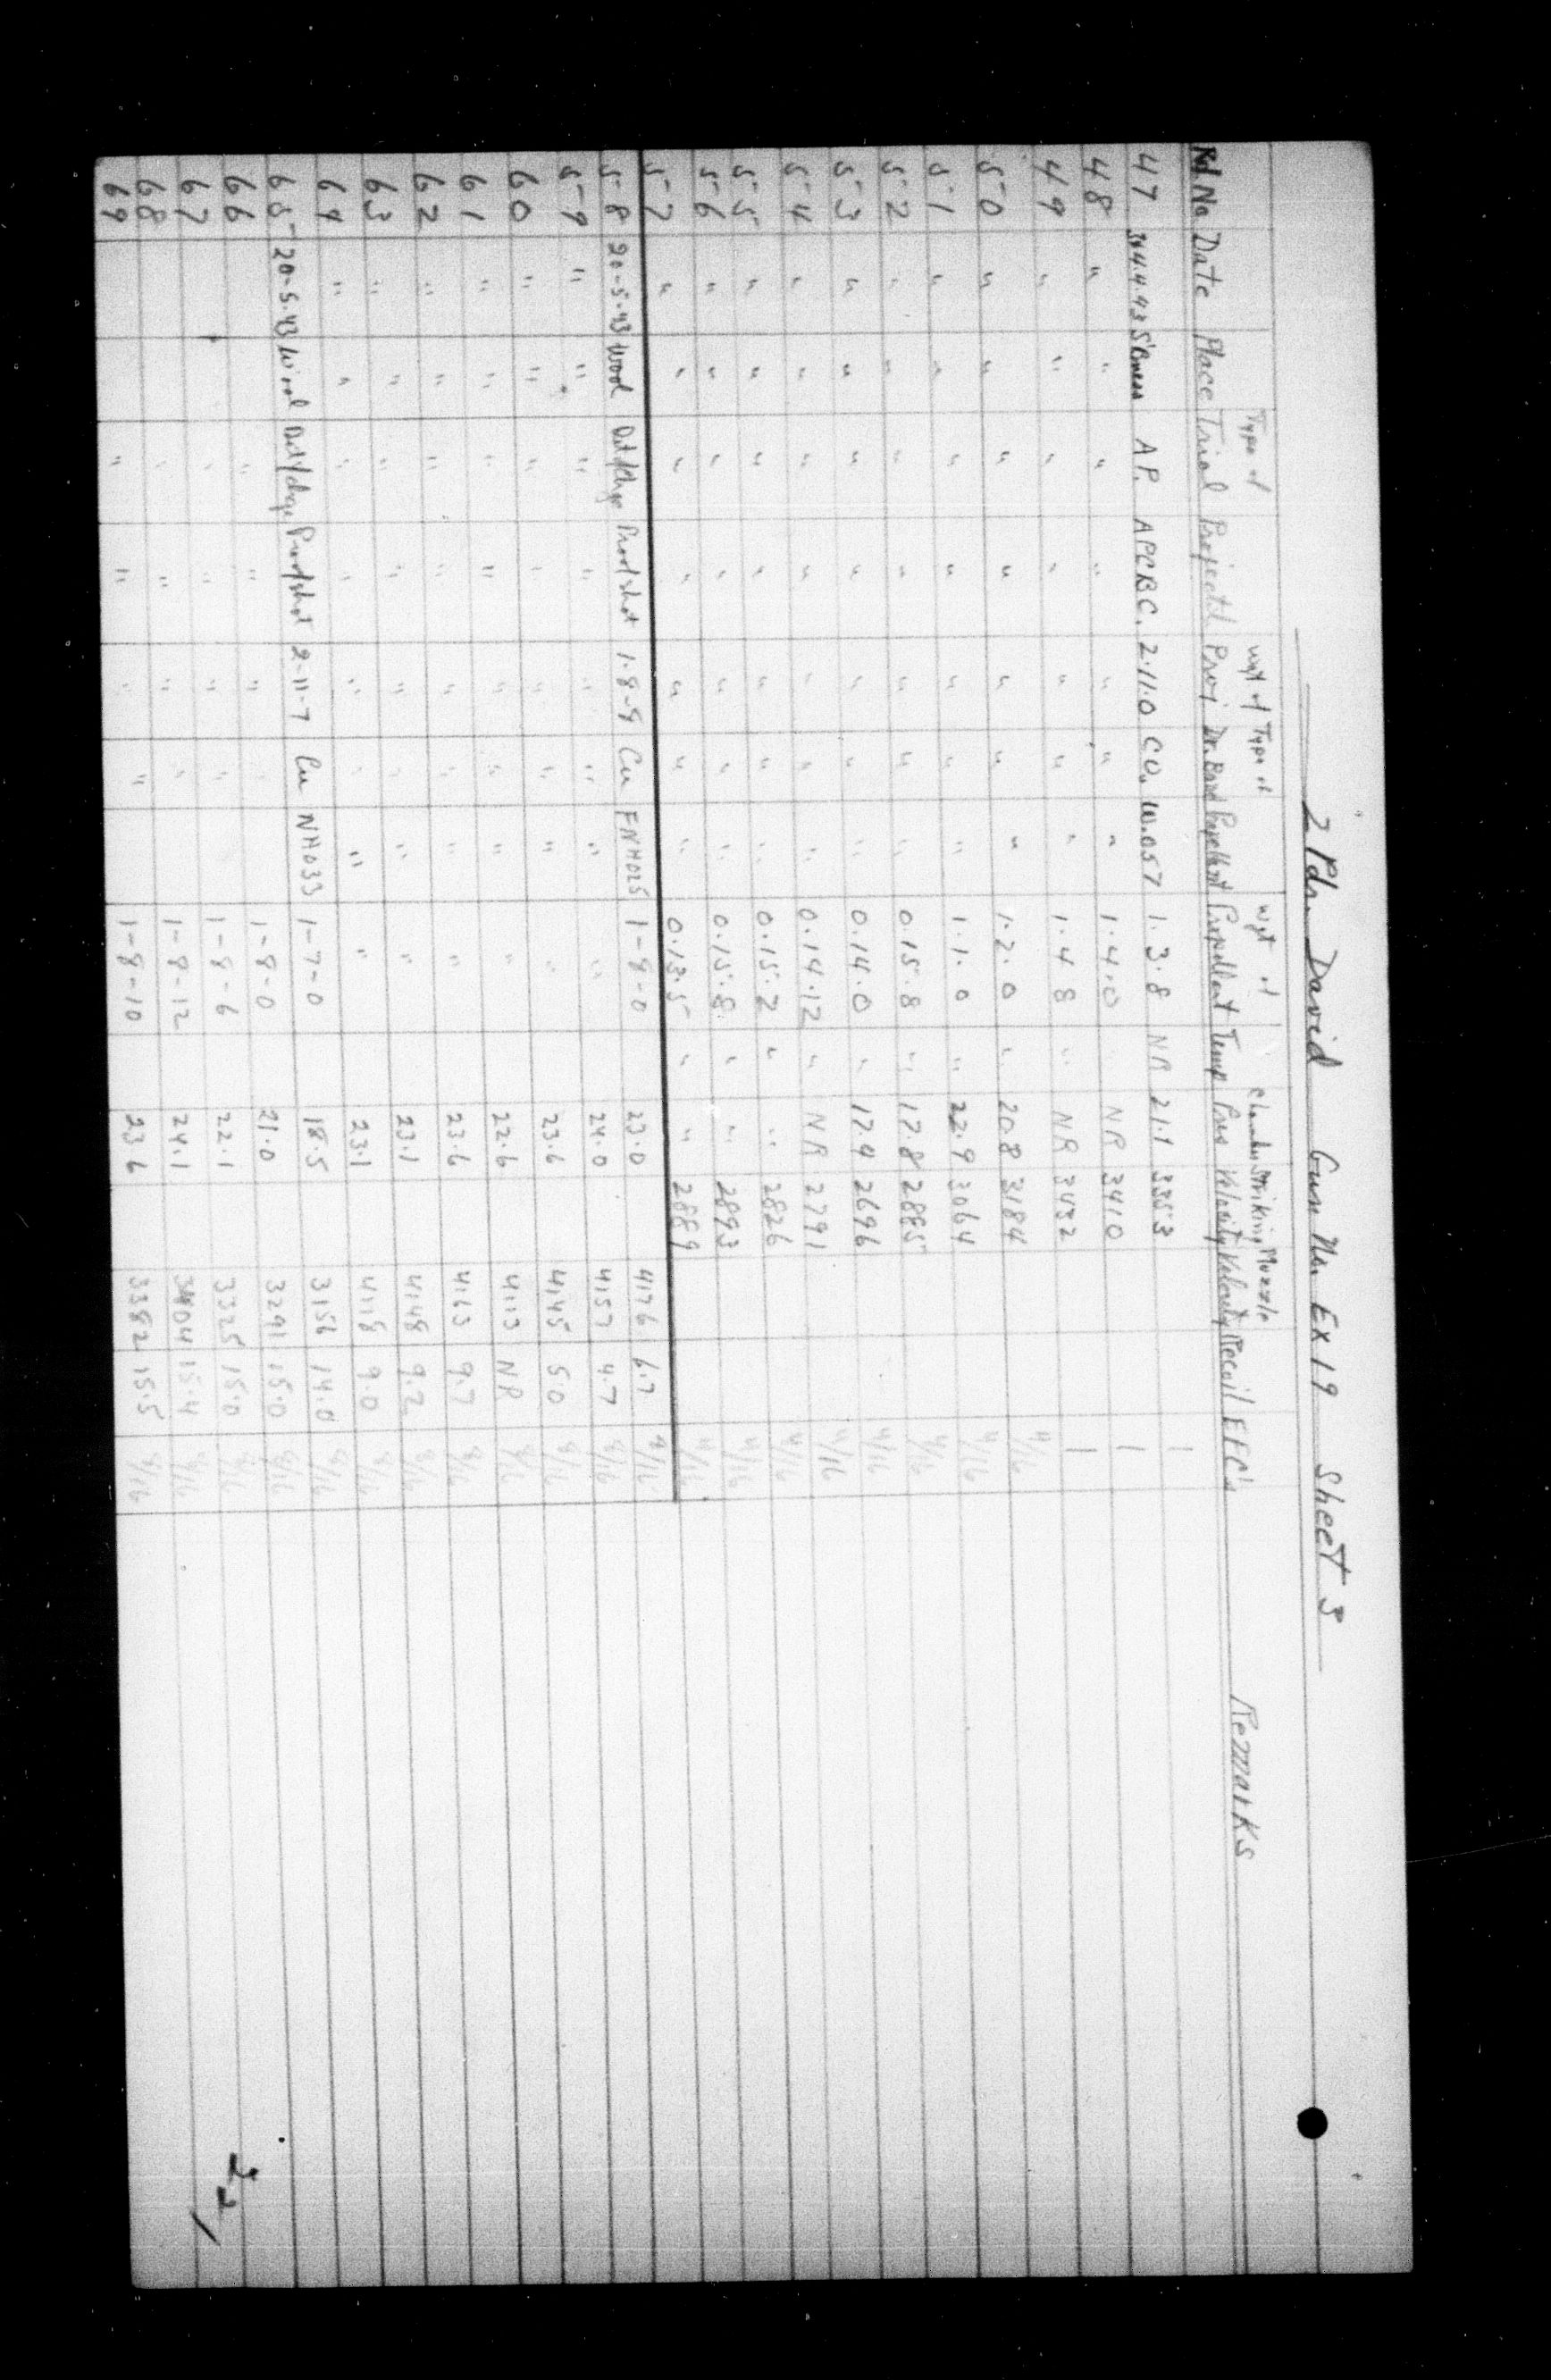 2 Pdr. David Gun No. Ex 19 Sheet 3
Type of Wgt of Type of Wgt of Chamber Striking Muzzle
Rd No Date Place Trial Projectd Proj Dr. Band Propellant Propellant Temp Pres Velocity Velocity Recoil EFC's Remarks
47 S'Bness A.P. APCBC. 2.11.0 CO. W.057 1.3.8 NR 21.1 3353 1
48 " " " " " " " 1.4.0 NR 3410 1
49 " " " " " " " 1.4.8 " NR 3432 1
50 " " " " " " " 1.2.0 " 20.8 3184 4/16
51 " " " " " " " 1.1.0 " 22.9 3064 4/16
52 " " " " " " " 0.15.8 " 17.8 2885 4/16
53 " " " " " " " 0.14.0 " 17.4 2696 4/16
54 " " " " " " " 0.14.12 " NR 2791 4/16
55 " " " " " " " 0.15.2 " " 2826 4/16
56 " " " " " " " 0.15.8 " " 2893 4/16
57 " " " " " " " 0.13.5 " " 2889 4/16
58 20-5-43 Wood Det/Chge Proof shot 1-8-9 Cu FNH025 1-8-0 23.0 4176 6.7 9/16
59 " " " " " " " " 24.0 4157 4.7 9/16
60 " " " " " " " " 23.6 4145 5.0 9/16
61 " " " " " " " " 22.6 4113 NR 9/16
62 " " " " " " " " 23.6 4163 9.7 9/16
63 " " " " " " " " 23.1 4148 9.2 9/16
64 " " " " " " " " 23.1 4118 9.0 9/16
65 20-5-43 Wood Det/chge Proof shot 2-11-7 Cu NH033 1-7-0 18.5 3156 14.0 9/16
66 " " " 1-8-0 21.0 3291 15.0 9/16
67 " " " " 1-8-6 22.1 3325 15.0 9/16
68 " " " " 1-8-12 24.1 3404 15.4 9/16
69 " " " " 1-8-10 23.6 3382 15.5 9/16